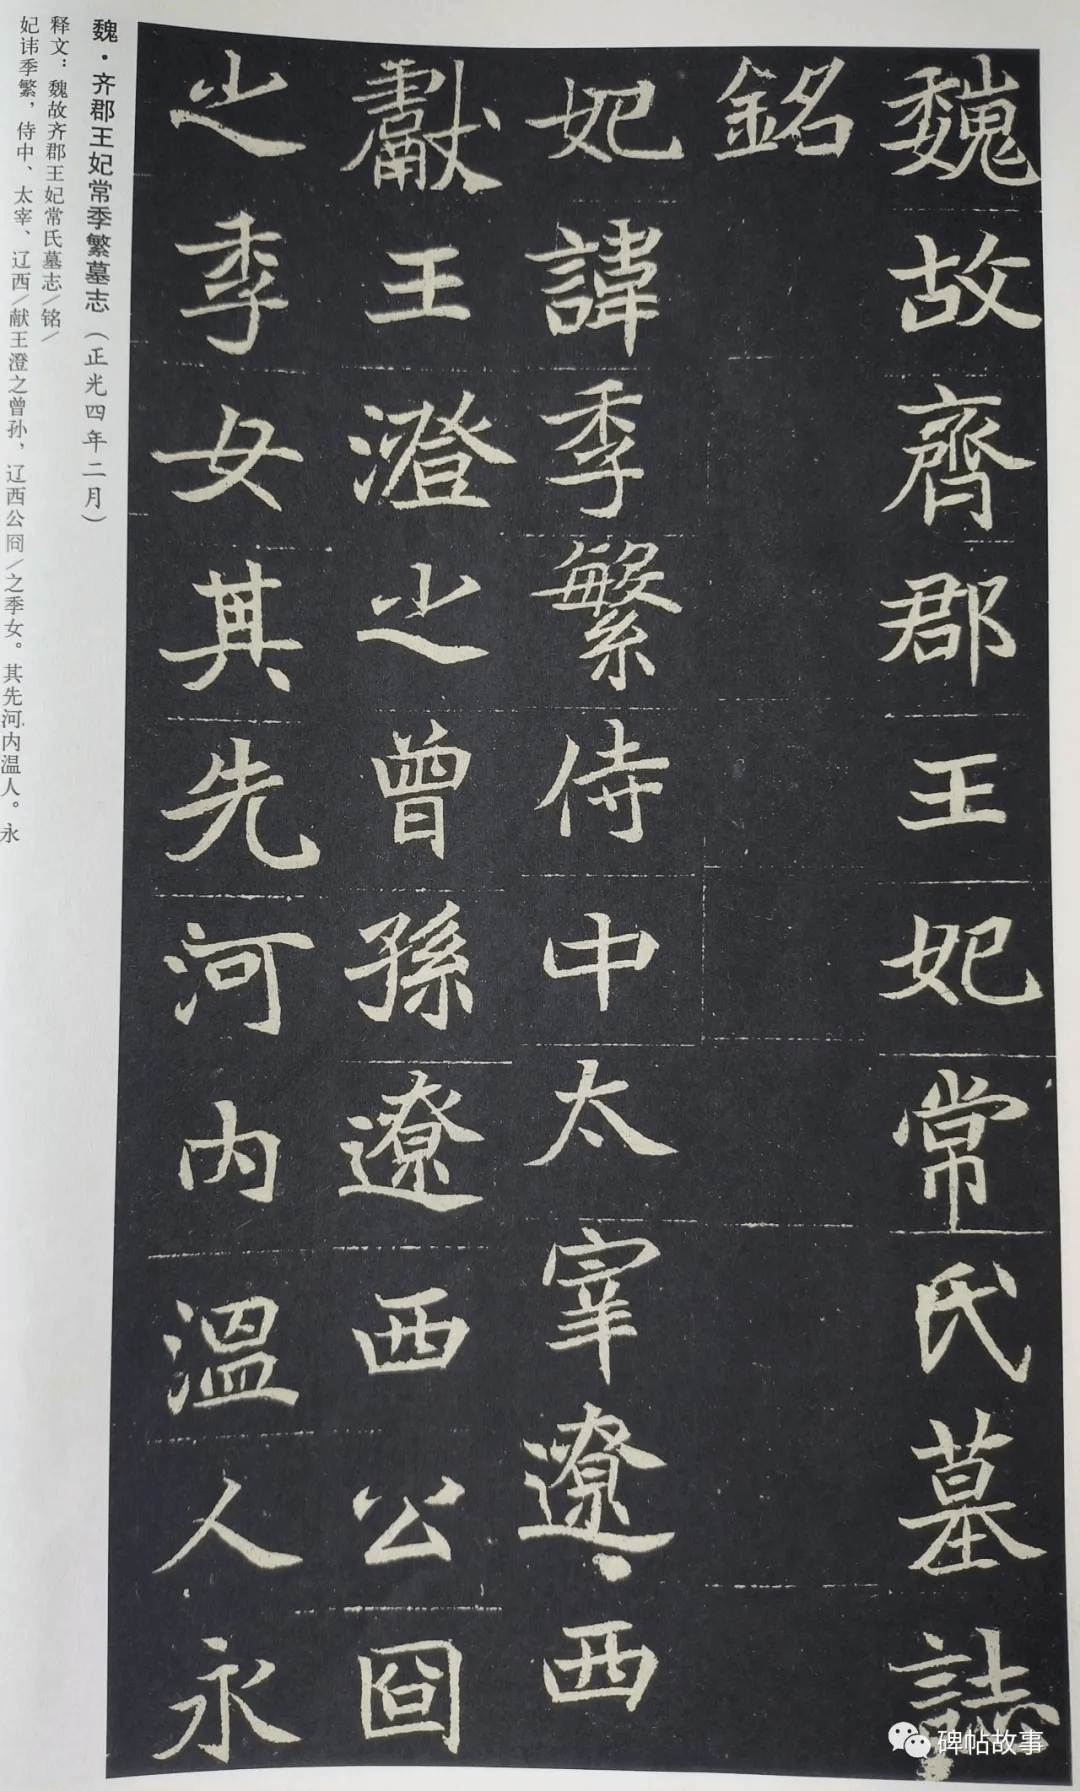 魏故齊郡王妃常氏墓誌
銘
妃諱季繁侍中太宰遼西
獻王澄之曾孫遼西公囧
之季女其先河内溫人永
魏·齐郡王妃常季繁墓志（正光四年二月）
释文：魏故齐郡王妃常氏墓志/铭/
妃讳季繁，侍中、太宰、辽西/献王澄之曾孙，辽西公囧/之季女。其先河内温人。永
碑帖故事